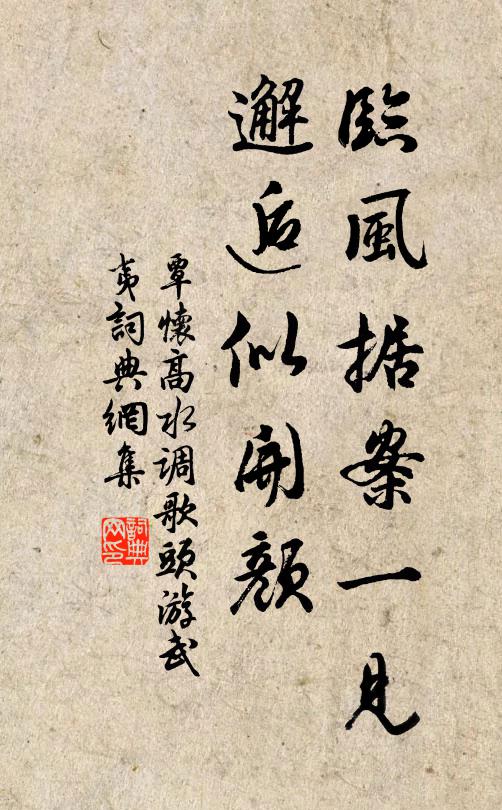 臨風据案一見
邂逅似開顔
覃懷高水调歌頭游武
夷詞典網集
詞典网印